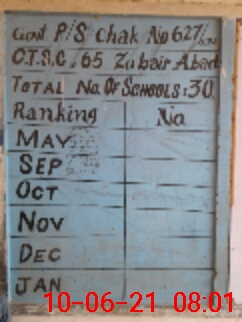 Govt P/S Chak No 627/
C.T.S.C. 65 Zubair Abad
TOTAL No. OF SCHOOLS:30.
Ranking No
MAY
SEP
OCT
NOV
DEC
JAN
10-06-21 08:01